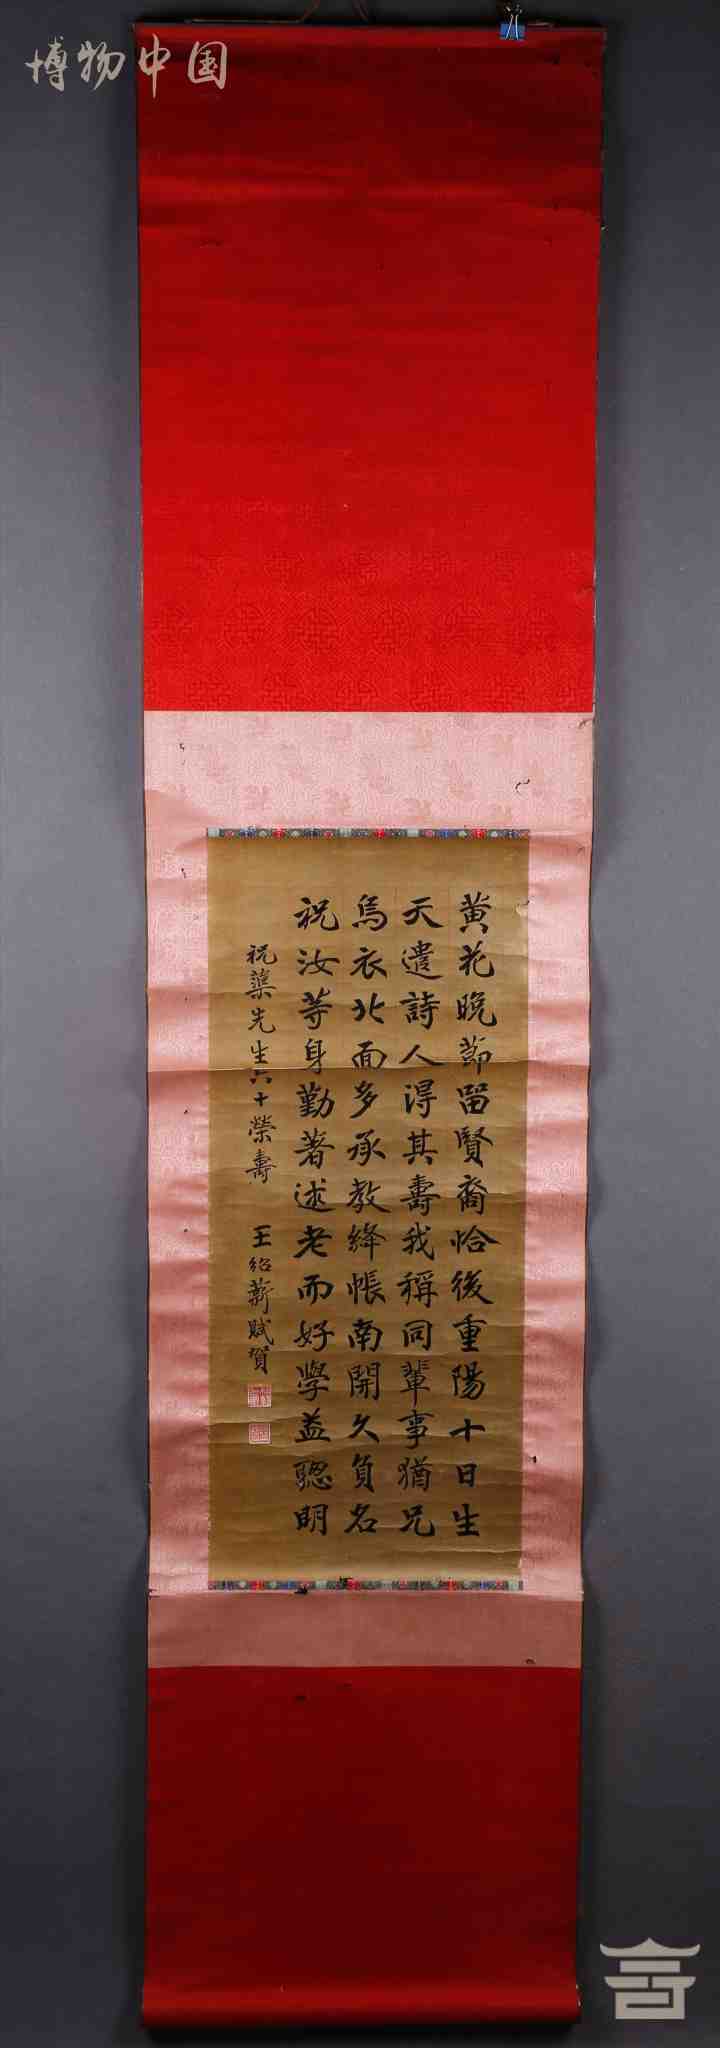 博物中国
黄花晚節留賢裔恰後重陽十日生
天遣詩人得其壽我稱同輩事猶兄
烏衣北面多承教絳帳南開久負名
祝汝等身勤著述老而好學益聰明
祝蕖先生六十榮壽 王紹薪賦賀